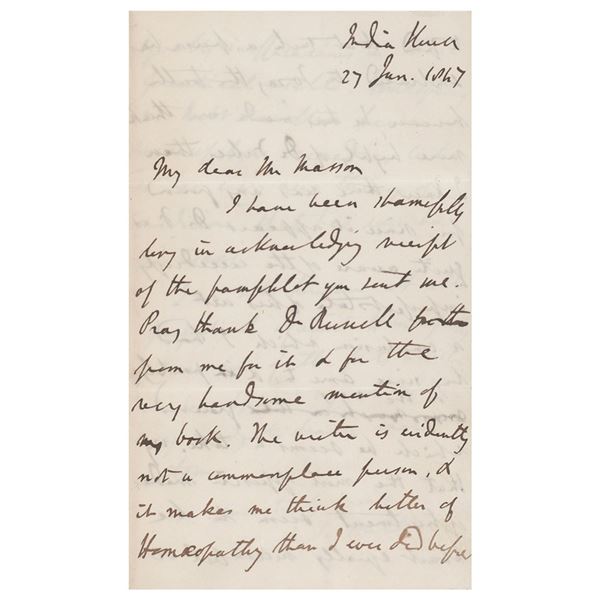 India House
27 Jan. 1847
My dear Mr Masson
I have been shamefully
long in acknowledging receipt
of the pamphlet you sent me.
Pray thank Dr Russell
from me for it & for the
very handsome mention of
my book. The writer is evidently
not a commonplace person, &
it makes me think better of
Homœopathy than I ever did before